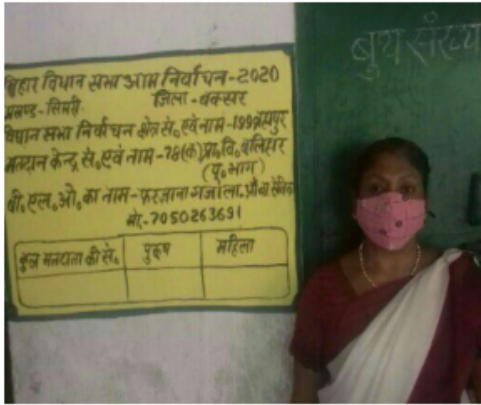 बिहार विधान सभा आम निर्वाचन-2020
प्रखण्ड-सिमरी जिला-बक्सर
विधान सभा निर्वाचन क्षेत्र सं॰ एवं नाम-199 ब्रह्मपुर
मतदान केन्द्र सं॰ एवं नाम-78(क) प्रा॰ वि॰ बलिहार
(पू॰ भाग)
बी॰ एल॰ ओ॰ का नाम-फरजाना गजाला
मो॰-7050263691
कुल मतदाता की सं॰ पुरूष महिला
बुथ संख्या